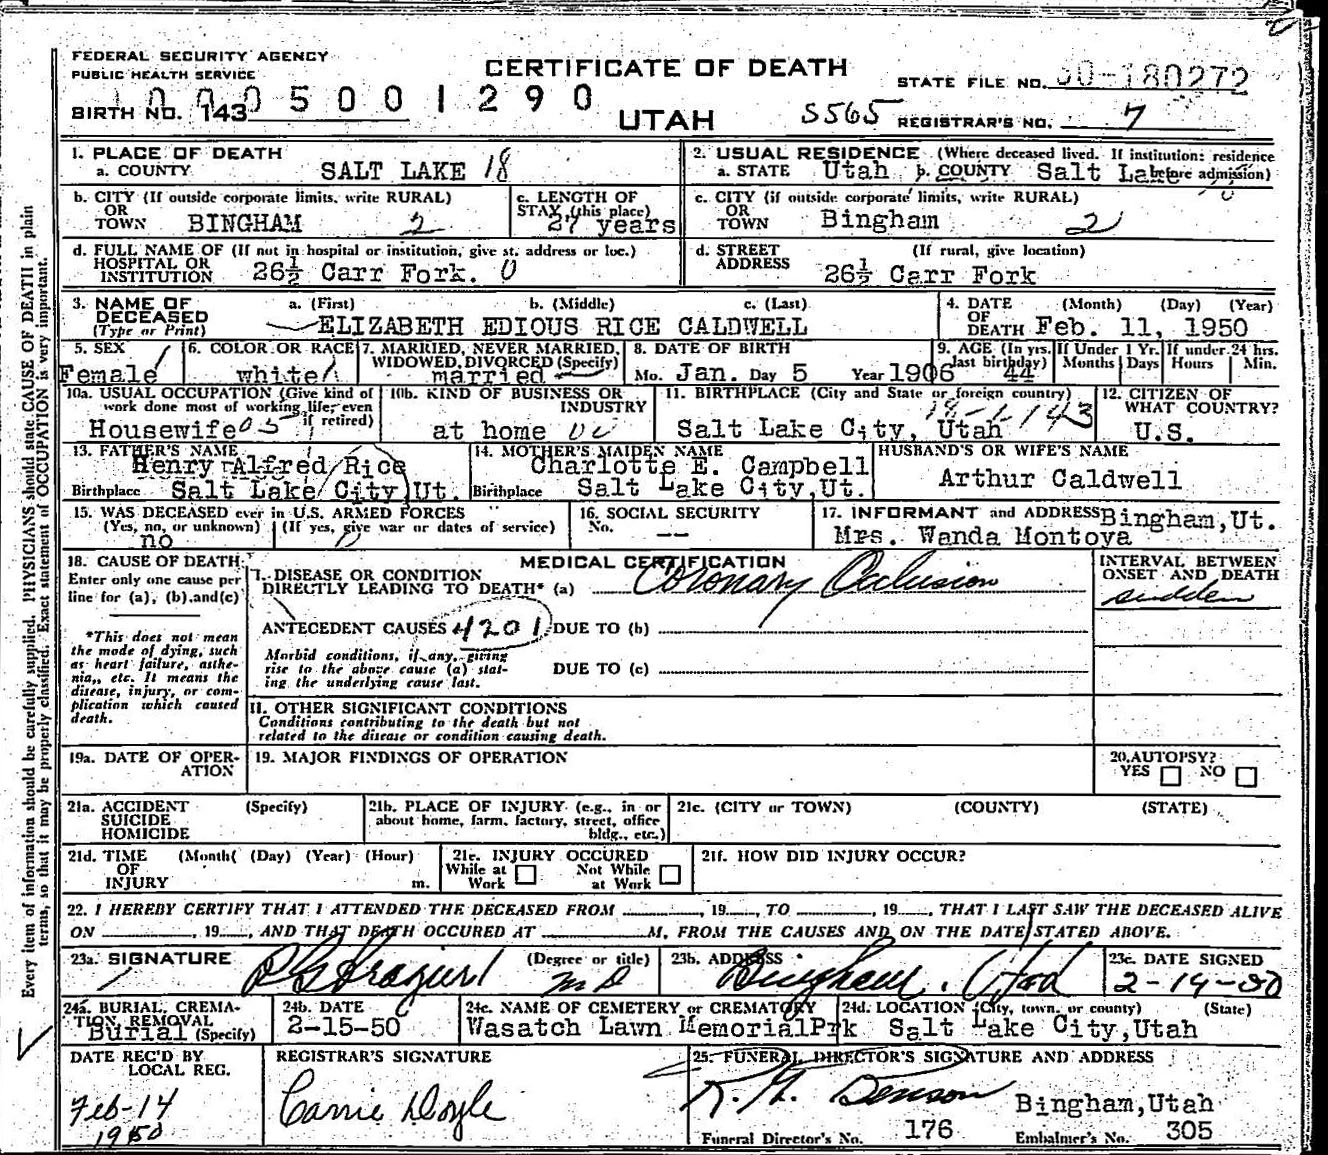 FEDERAL SECURITY AGENCY
PUBLIC HEALTH SERVICE
CERTIFICATE OF DEATH
STATE FILE NO. 50-180272
BIRTH NO. 143
5001290
UTAH
S565 REGISTRAR'S NO. 7
1. PLACE OF DEATH
a. COUNTY SALT LAKE 18
2. USUAL RESIDENCE (Where deceased lived. If institution: residence before admission)
a. STATE Utah b. COUNTY Salt Lake
b. CITY (If outside corporate limits, write RURAL)
OR
TOWN BINGHAM 2
c. LENGTH OF
STAY (this place)
27 years
c. CITY (if outside corporate limits, write RURAL)
OR
TOWN Bingham 2
d. FULL NAME OF (If not in hospital or institution, give st. address or loc.)
HOSPITAL OR
INSTITUTION 26½ Carr Fork. 0
d. STREET (If rural, give location)
ADDRESS 26½ Carr Fork
3. NAME OF
DECEASED
(Type or Print)
a. (First) b. (Middle) c. (Last)
ELIZABETH EDIOUS RICE CALDWELL
4. DATE (Month) (Day) (Year)
OF
DEATH Feb. 11, 1950
5. SEX
Female
6. COLOR OR RACE
white
7. MARRIED, NEVER MARRIED,
WIDOWED, DIVORCED (Specify)
married
8. DATE OF BIRTH
Mo. Jan. Day 5 Year 1906
9. AGE (In yrs. last birthday) 44
If Under 1 Yr.
Months Days
If under 24 hrs.
Hours Min.
10a. USUAL OCCUPATION (Give kind of
work done most of working life, even
if retired)
Housewife
10b. KIND OF BUSINESS OR
INDUSTRY
at home
11. BIRTHPLACE (City and State or foreign country)
Salt Lake City, Utah 143
12. CITIZEN OF
WHAT COUNTRY?
U.S.
13. FATHER'S NAME
Henry Alfred Rice
Birthplace Salt Lake City, Ut.
14. MOTHER'S MAIDEN NAME
Charlotte E. Campbell
Birthplace Salt Lake City, Ut.
HUSBAND'S OR WIFE'S NAME
Arthur Caldwell
15. WAS DECEASED ever in U.S. ARMED FORCES
(Yes, no, or unknown) (If yes, give war or dates of service)
no
16. SOCIAL SECURITY
No. --
17. INFORMANT and ADDRESS Bingham, Ut.
Mrs. Wanda Montoya
18. CAUSE OF DEATH
Enter only one cause per
line for (a), (b), and (c)
*This does not mean
the mode of dying, such
as heart failure, asthe-
nia, etc. It means the
disease, injury, or com-
plication which caused
death.
MEDICAL CERTIFICATION
I. DISEASE OR CONDITION
DIRECTLY LEADING TO DEATH* (a) Coronary Occlusion
INTERVAL BETWEEN
ONSET AND DEATH
sudden
ANTECEDENT CAUSES 4201 DUE TO (b)
Morbid conditions, if any, giving
rise to the above cause (a) stat-
ing the underlying cause last.
DUE TO (c)
II. OTHER SIGNIFICANT CONDITIONS
Conditions contributing to the death but not
related to the disease or condition causing death.
19a. DATE OF OPER-
ATION
19. MAJOR FINDINGS OF OPERATION
20. AUTOPSY?
YES NO
21a. ACCIDENT (Specify)
SUICIDE
HOMICIDE
21b. PLACE OF INJURY (e.g., in or
about home, farm, factory, street, office
bldg., etc.)
21c. (CITY or TOWN) (COUNTY) (STATE)
21d. TIME (Month( (Day) (Year) (Hour)
OF
INJURY m.
21e. INJURY OCCURED
While at Work Not While at Work
21f. HOW DID INJURY OCCUR?
22. I HEREBY CERTIFY THAT I ATTENDED THE DECEASED FROM , 19 , TO , 19 , THAT I LAST SAW THE DECEASED ALIVE
ON , 19 , AND THAT DEATH OCCURED AT M, FROM THE CAUSES AND ON THE DATE STATED ABOVE.
23a. SIGNATURE (Degree or title)
Frazier MD
23b. ADDRESS
Bingham, Utah
23c. DATE SIGNED
2-14-50
24a. BURIAL, CREMA-
TION, REMOVAL
Burial (Specify)
24b. DATE
2-15-50
24c. NAME OF CEMETERY or CREMATORY
Wasatch Lawn MemorialPrk
24d. LOCATION (City, town, or county) (State)
Salt Lake City, Utah
DATE REC'D BY
LOCAL REG.
Feb-14
1950
REGISTRAR'S SIGNATURE
Carrie Doyle
25. FUNERAL DIRECTOR'S SIGNATURE AND ADDRESS
Benson
Bingham, Utah
Funeral Director's No. 176 Embalmer's No. 305
Every item of information should be carefully supplied. PHYSICIANS should state CAUSE OF DEATH in plain
terms, so that it may be properly classified. Exact statement of OCCUPATION is very important.